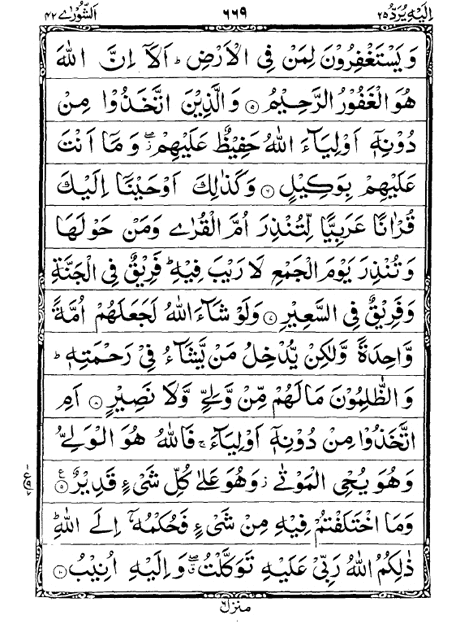 اِلَيْهِ يُرَدُّ ٢٥ ٦٦٩ اَلشُّوْرٰى ٤٢
وَيَسْتَغْفِرُوْنَ لِمَنْ فِى الْاَرْضِ ؕ اَلَآ اِنَّ اللّٰهَ
هُوَ الْغَفُوْرُ الرَّحِيْمُ ۝٥ وَالَّذِيْنَ اتَّخَذُوْا مِنْ
دُوْنِهٖٓ اَوْلِيَآءَ اللّٰهُ حَفِيْظٌ عَلَيْهِمْ ۖ وَمَآ اَنْتَ
عَلَيْهِمْ بِوَكِيْلٍ ۝٦ وَكَذٰلِكَ اَوْحَيْنَآ اِلَيْكَ
قُرْاٰنًا عَرَبِيًّا لِّتُنْذِرَ اُمَّ الْقُرٰى وَمَنْ حَوْلَهَا
وَتُنْذِرَ يَوْمَ الْجَمْعِ لَا رَيْبَ فِيْهِ ؕ فَرِيْقٌ فِى الْجَنَّةِ
وَفَرِيْقٌ فِى السَّعِيْرِ ۝٧ وَلَوْ شَآءَ اللّٰهُ لَجَعَلَهُمْ اُمَّةً
وَّاحِدَةً وَّلٰكِنْ يُّدْخِلُ مَنْ يَّشَآءُ فِىْ رَحْمَتِهٖ ؕ
وَالظّٰلِمُوْنَ مَا لَهُمْ مِّنْ وَّلِىٍّ وَّلَا نَصِيْرٍ ۝٨ اَمِ
اتَّخَذُوْا مِنْ دُوْنِهٖٓ اَوْلِيَآءَ ۚ فَاللّٰهُ هُوَ الْوَلِىُّ
وَهُوَ يُحْىِ الْمَوْتٰى ۫ وَهُوَ عَلٰى كُلِّ شَىْءٍ قَدِيْرٌ ۝٩
وَمَا اخْتَلَفْتُمْ فِيْهِ مِنْ شَىْءٍ فَحُكْمُهٗٓ اِلَى اللّٰهِ ؕ
ذٰلِكُمُ اللّٰهُ رَبِّىْ عَلَيْهِ تَوَكَّلْتُ ۖ وَاِلَيْهِ اُنِيْبُ ۝١٠
منزل ٦